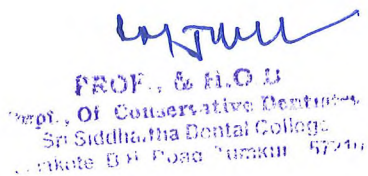 PROF., & H.O.D
Dept., Of Conservative Dentistry
Sri Siddhartha Dental College
B.H. Road Tumkur